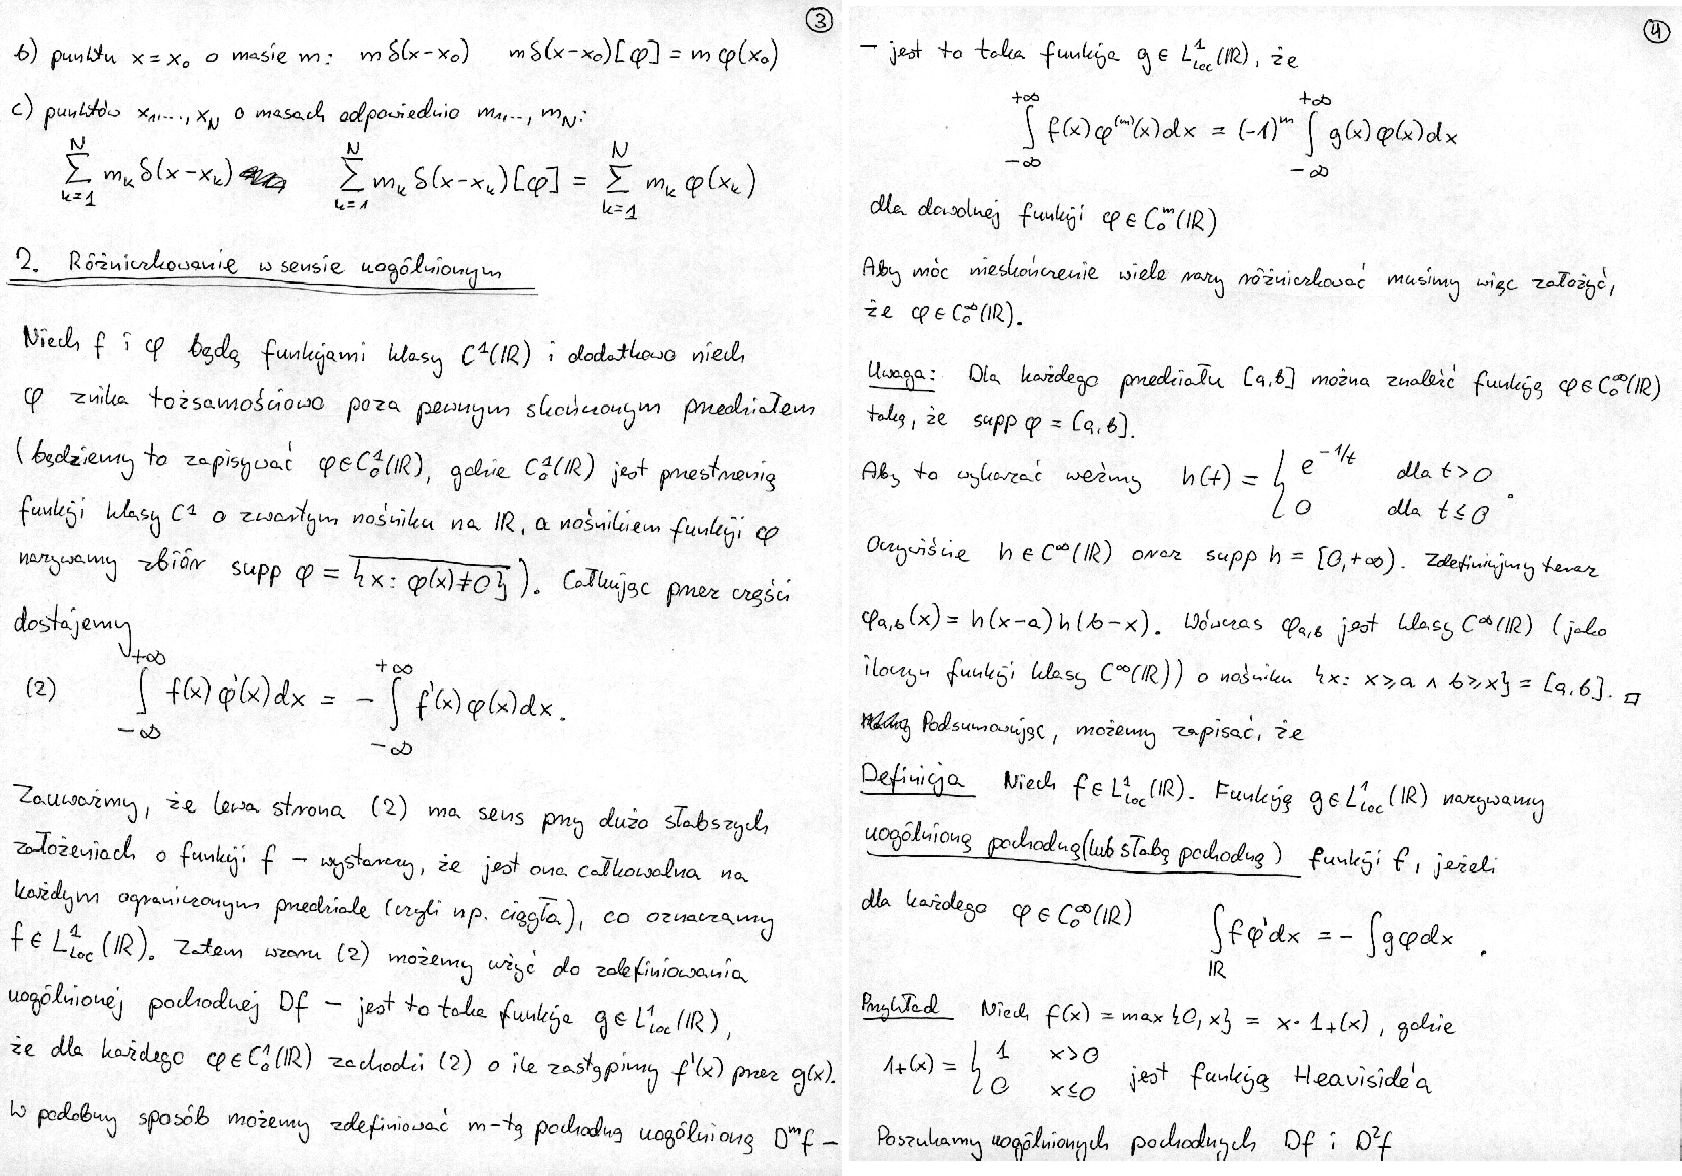 ③
b) punktu x = x₀ o masie m: mδ(x-x₀) mδ(x-x₀)[φ] = mφ(x₀)
c) punktów x₁,..., x_N o masach odpowiednio m₁,..., m_N:
∑_{k=1}^{N} m_k δ(x-x_k) ∑_{k=1}^{N} m_k δ(x-x_k)[φ] = ∑_{k=1}^{N} m_k φ(x_k)
2. Różniczkowanie w sensie uogólnionym
Niech f i φ będą funkcjami klasy C¹(ℝ) i dodatkowo niech
φ znika tożsamościowo poza pewnym skończonym przedziałem
(będziemy to zapisywać φ∈C₀¹(ℝ), gdzie C₀¹(ℝ) jest przestrzenią
funkcji klasy C¹ o zwartym nośniku na ℝ, a nośnikiem funkcji φ
nazywamy zbiór supp φ = \overline{{x: φ(x)≠0}}). Całkując przez części
dostajemy
(2) ∫_{-∞}^{+∞} f(x)φ'(x)dx = -∫_{-∞}^{+∞} f'(x)φ(x)dx.
Zauważmy, że lewa strona (2) ma sens przy dużo słabszych
założeniach o funkcji f – wystarczy, że jest ona całkowalna na
każdym ograniczonym przedziale (czyli np. ciągła), co oznaczamy
f∈L¹_{loc}(ℝ). Zatem wzoru (2) możemy użyć do zdefiniowania
uogólnionej pochodnej Df – jest to taka funkcja g∈L¹_{loc}(ℝ),
że dla każdego φ∈C₀¹(ℝ) zachodzi (2) o ile zastąpimy f'(x) przez g(x).
W podobny sposób możemy zdefiniować m-tą pochodną uogólnioną Dᵐf –
④
– jest to taka funkcja g∈L¹_{loc}(ℝ), że
∫_{-∞}^{+∞} f(x)φ^{(m)}(x)dx = (-1)^m ∫_{-∞}^{+∞} g(x)φ(x)dx
dla dowolnej funkcji φ∈C₀ᵐ(ℝ)
Aby móc nieskończenie wiele razy różniczkować musimy więc założyć,
że φ∈C₀^∞(ℝ).
Uwaga: Dla każdego przedziału [a,b] można znaleźć funkcję φ∈C₀^∞(ℝ)
taką, że supp φ = [a,b].
Aby to wykazać weźmy h(t) = { e^{-1/t} dla t>0
0 dla t≤0 .
Oczywiście h∈C^∞(ℝ) oraz supp h = [0,+∞). Zdefiniujmy teraz
φ_{a,b}(x) = h(x-a)h(b-x). Wówczas φ_{a,b} jest klasy C^∞(ℝ) (jako
iloczyn funkcji klasy C^∞(ℝ)) o nośniku {x: x≥a ∧ b≥x} = [a,b]. □
Podsumowując, możemy zapisać, że
Definicja Niech f∈L¹_{loc}(ℝ). Funkcję g∈L¹_{loc}(ℝ) nazywamy
uogólnioną pochodną (lub słabą pochodną) funkcji f, jeżeli
dla każdego φ∈C₀^∞(ℝ) ∫_ℝ fφ'dx = -∫gφdx .
Przykład Niech f(x) = max{0,x} = x·1₊(x), gdzie
1₊(x) = { 1 x>0
0 x≤0 jest funkcją Heaviside'a
Poszukamy uogólnionych pochodnych Df i D²f